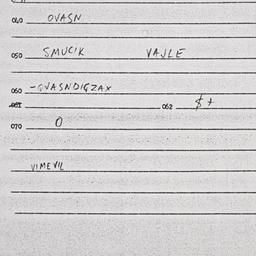 040 OVASN
050 SMUCIK VAJLE
060 -QVASNDIGZAX
062 $ +
070 O
VIMEVIL